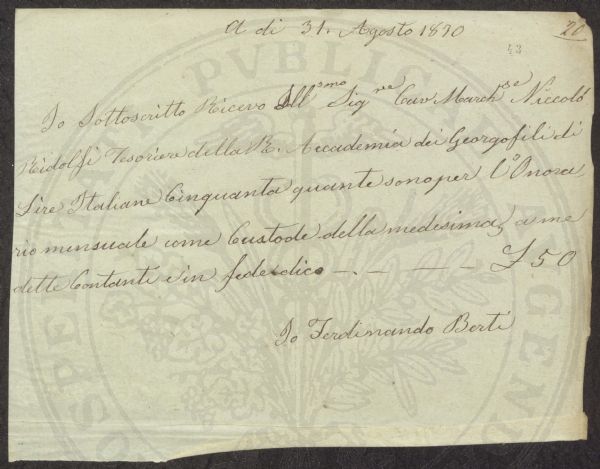 A di 31. Agosto 1870
20
43
Io Sottoscritto Ricevo Ill.smo Sig.re Cav March.se Niccolò
Ridolfi Tesoriere della R. Accademia dei Georgofili di
Lire Italiane Cinquanta quante sono per l'Onora,
rio mensuale come Custode della medesima, a me
dette Contanti e in fede dico —.— — — £ 50
Io Ferdinando Berti
PVBLICAE
PROSPERITATI
AVGENDAE